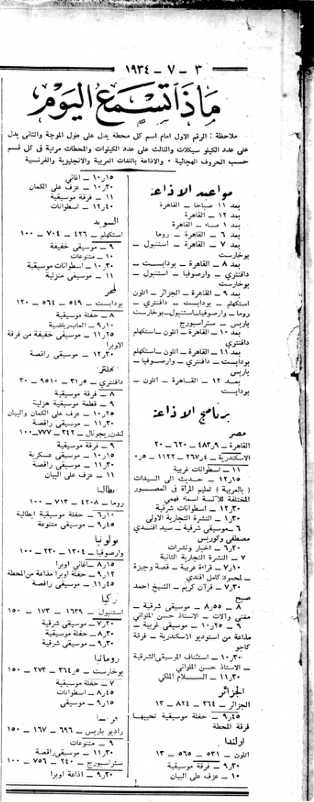 ٣ - ٧ - ١٩٣٤
ماذا تسمع اليوم
ملاحظة : الرقم الاول امام اسم كل محطة يدل على طول الموجة والثانى يدل
على عدد الكيلو سيكلات والثالث على عدد الكيلوات والمحطات مرتبة فى كل قسم
حسب الحروف الهجائية - والاذاعة باللغات العربية والانجليزية والفرنسية
مواعيد الاذاعة
بعد ١١ صباحا - القاهرة
بعد ١٢ - القاهرة
بعد ١ مساء - القاهرة
بعد ٦ - القاهرة - روما
بعد ٧ - القاهرة - استنبول -
بوخارست
بعد ٨ - القاهرة - بودابست -
دافنترى - وارصوفيا - استنبول -
بوخارست
بعد ٩ - القاهرة - الجزائر - اتلون
استكهلم - بودابست - دافنترى -
روما - وارصوفيا - استنبول - بوخارست
باريس - ستراسبورج
بعد ١٠ - القاهرة - اتلون - استكهلم
بعد ١١ - القاهرة - اتلون - استكهلم
بودابست - دافنترى - وارصوفيا -
باريس
بعد ١٢ - القاهرة - اتلون -
بودابست
برنامج الاذاعة
مصر
القاهرة - ٤٨٣٫٩ - ٦٢٠ - ٢٠
الاسكندرية - ٢٦٧٫٤ - ١١٢٢ - ٠٫٥
١١ - اسطوانات غربية
١٢٫١٥ - حديث الى السيدات
( بالعربية ) تعليم المرأة فى العصور
المختلفة للآنسة اسماء فهمى
١٢٫٣٠ - اسطوانات شرقية
١٫٣٠ - النشرة التجارية الاولى
٦ - موسيقى شرقية - سيد افندى
مصطفى وكوريس
٦٫٣٠ - اخبار ونشرات
٧ - النشرة التجارية الثانية
٧٫١٠ - قراءة عربية - قصة وجيزة
لمحمود كامل افندى
٧٫٣٠ - قرآن كريم - الشيخ احمد
صبح
٨ - ٨٫٥٥ - موسيقى شرقية -
مغنى وآلات - الاستاذ حسن الملوانى
- ١٠٫٢٥ - موسيقى غربية -
مذاعة من استوديو الاسكندرية - فرقة
١٠٫٣٠ - استئناف الموسيقى الشرقية
- الاستاذ حسن الملوانى
١١٫٣٠ - السلام الملكى
الجزائر
الجزائر - ٣٦٤ - ٨٢٤ - ١٣
٩٫٤٥ - حفلة موسيقية تحييها
فرقة المحطة
اتلون - ٥٣١ - ٥٦٥ - ١٣
٩٫٣٠ - فرقة موسيقية
١٠ - عزف على البيان
١٠٫١٥ - اغانى
١٠٫٣٠ - عزف على الكمان
١١ - فرقة موسيقية
١٢٫٤٠ - اسطوانات
السويد
استكهلم - ٤٢٦ - ٧٠٤ - ١٠٠
٩ - موسيقى خفيفة
١٠ - متنوعات
١٠٫٣٠ - اسطوانات موسيقية
١١ - موسيقى منزلية
المجر
بودابست - ٥٤٩ - ٥٦٤ - ١٢٠
٨ - حفلة موسيقية
٩٫١٠ - العاب رياضية
١١٫٢٥ - موسيقى خفيفة من فرقة
الاوبرا
١٢٫٣٠ - موسيقى راقصة
٨ - فرقة موسيقية
٩ - قطعة موسيقية هزلية
١٠٫٢٥ - عزف على الكمان والبيان
١١٫٣٠ - موسيقى راقصة
لندن ريجونال - ٣٤٢ - ٨٧٧ - ١٠٠
٩ - فرقة موسيقية
١٠٫١٥ - موسيقى عسكرية
١١٫٣٠ - موسيقى راقصة
١١ - عزف على البيان
ايطاليا
روما - ٤٢٠٫٨ - ٧١٣ - ١٠٠
٦٫١٠ - حفلة موسيقية ايطالية
٩٫٤٥ - موسيقى متنوعة
بولونيا
وارصوفيا - ١٣٠٤ - ٢٣٠ - ١٠٠
٨٫١٥ - اغانى اوبرا
٩٫١٢ - حفلة اوبرا مذاعة من المحطة
١١٫٤٥ - موسيقى راقصة
تركيا
استنبول - ١٦٣٩ - ١٧٣ - ١٥٠
٧٫٣٠ - موسيقى شرقية
٨٫٣٠ - موسيقى شرقية
٩٫٣٠ - حفلة موسيقية
رومانيا
بوخارست - ٣٦٤٫٥ - ٢٧٣ - ١٥٠
٧ - حفلة موسيقية
٨٫٤٥ - اسطوانات
٩٫١٥ - موسيقى
فرنسا
٩ - متنوعات
١١٫٣٠ - موسيقى راقصة
٩٫٣٠ - اذاعة اوبرا